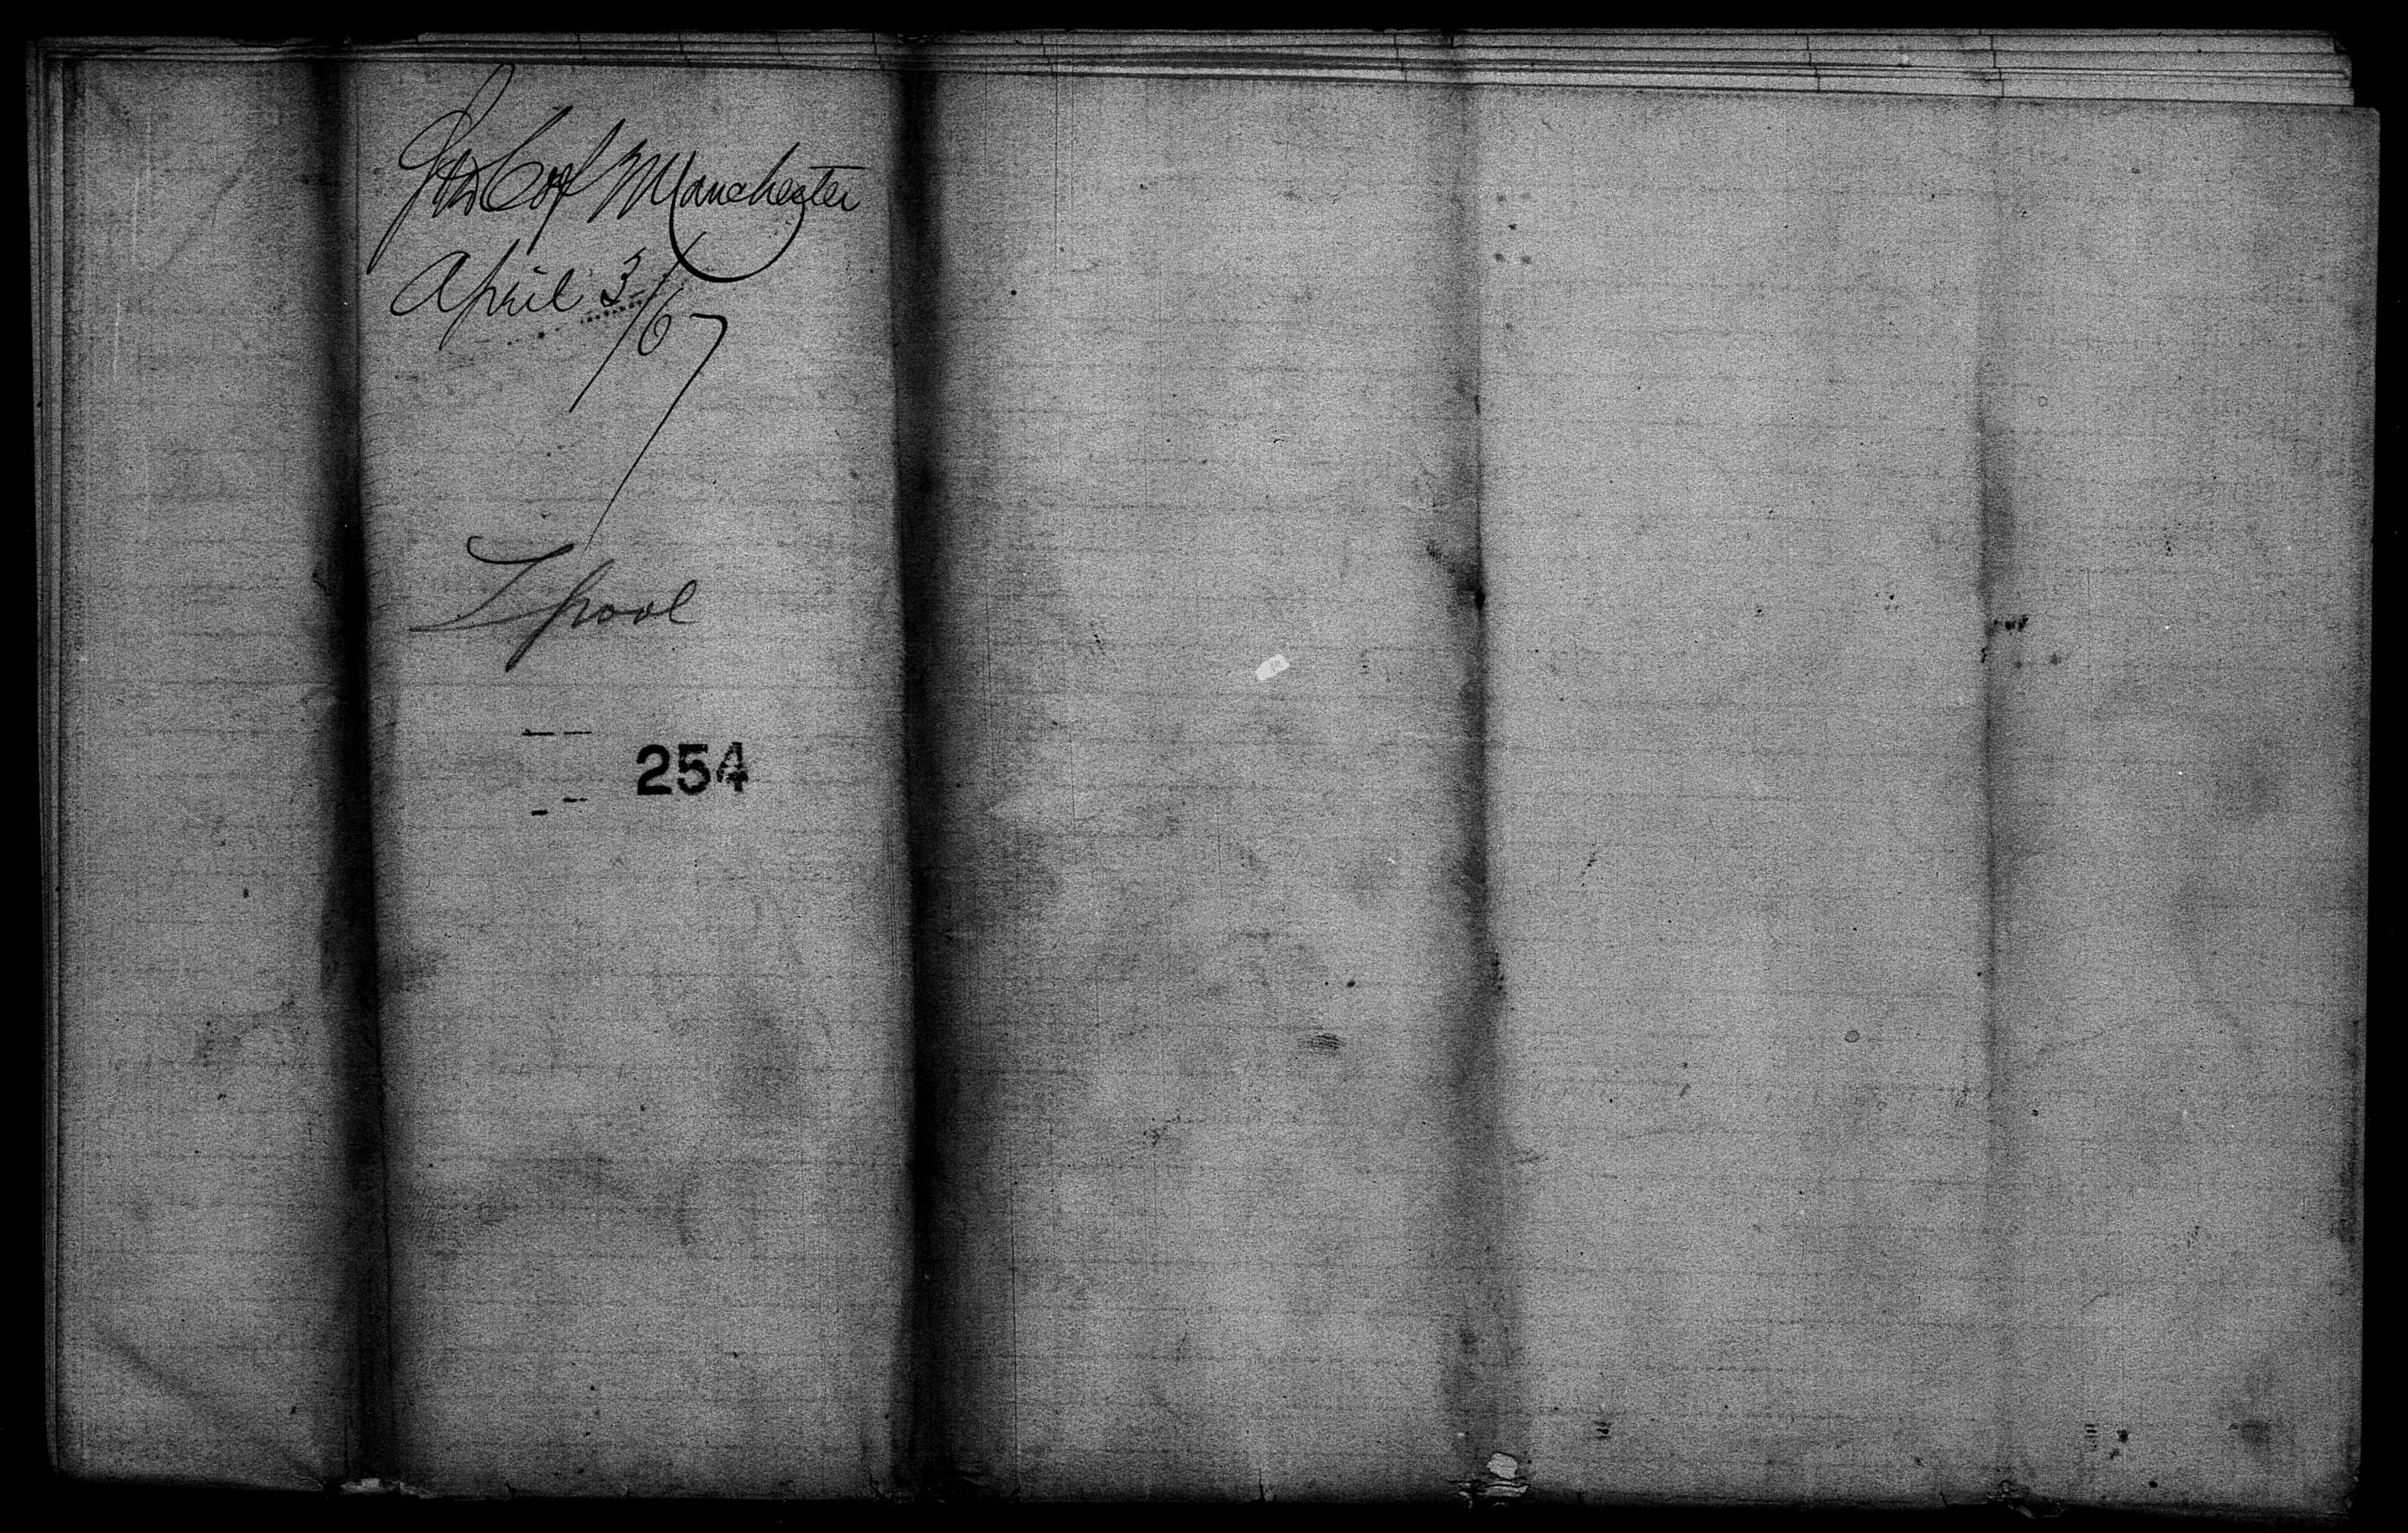 City of Manchester
April 3/67
Lpool
254